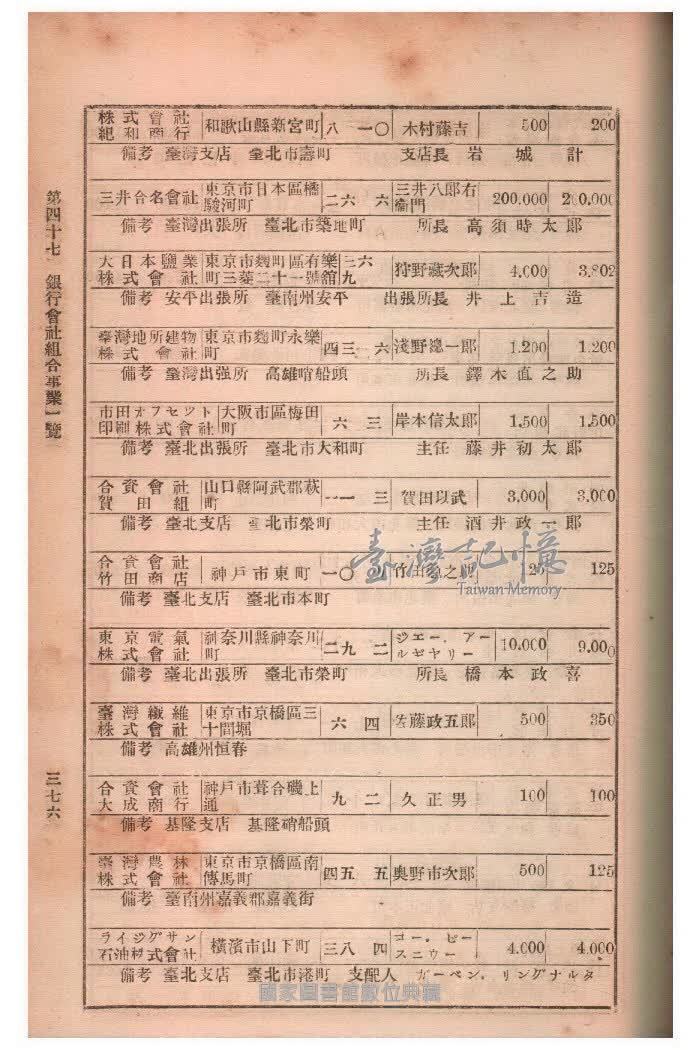 第四十七　銀行會社組合事業一覽
株式會社紀和商行 和歌山縣新宮町 八 一〇 木村藤吉 500 200
備考 臺灣支店 臺北市壽町 支店長 岩城計
三井合名會社 東京市日本區橋駿河町 二六 六 三井八郎右衞門 200.000 200.000
備考 臺灣出張所 臺北市築地町 所長 高須時太郎
大日本鹽業株式會社 東京市麴町區有樂町三菱二十一號舘 三六 九 狩野藏次郎 4.000 3.802
備考 安平出張所 臺南州安平 出張所長 井上吉造
臺灣地所建物株式會社 東京市麴町永樂町 四三 六 淺野總一郎 1.200 1.200
備考 臺灣出張所 高雄哨船頭 所長 鐸木直之助
市田オフセット印刷株式會社 大阪市區梅田町 六 三 岸本信太郎 1,500 1,500
備考 臺北出張所 臺北市大和町 主任 藤井初太郎
合資會社賀田組 山口縣阿武郡萩町 一一 三 賀田以武 3,000 3.000
備考 臺北支店 臺北市榮町 主任 酒井政一郎
合資會社竹田商店 神戶市東町 一〇 竹田 之助 125 125
備考 臺北支店 臺北市本町
東京電氣株式會社 神奈川縣神奈川町 二九 二 ジエー．アールゼヤリー 10.000 9.000
備考 臺北出張所 臺北市榮町 所長 橋本政喜
臺灣纖維株式會社 東京市京橋區三十間堀 六 四 佐藤政五郎 500 350
備考 高雄州恒春
合資會社大成商行 神戶市葺合磯上通 九 二 久正男 100 100
備考 基隆支店 基隆哨船頭
臺灣農林株式會社 東京市京橋區南傳馬町 四五 五 奧野市次郎 500 125
備考 臺南州嘉義郡嘉義街
ライジグサン石油株式會社 橫濱市山下町 三八 四 コー．ピースニウー 4.000 4.000
備考 臺北支店 臺北市港町 支配人 ガーベン．リングナルタ
三七六
臺灣記憶
Taiwan Memory
國家圖書館數位典藏